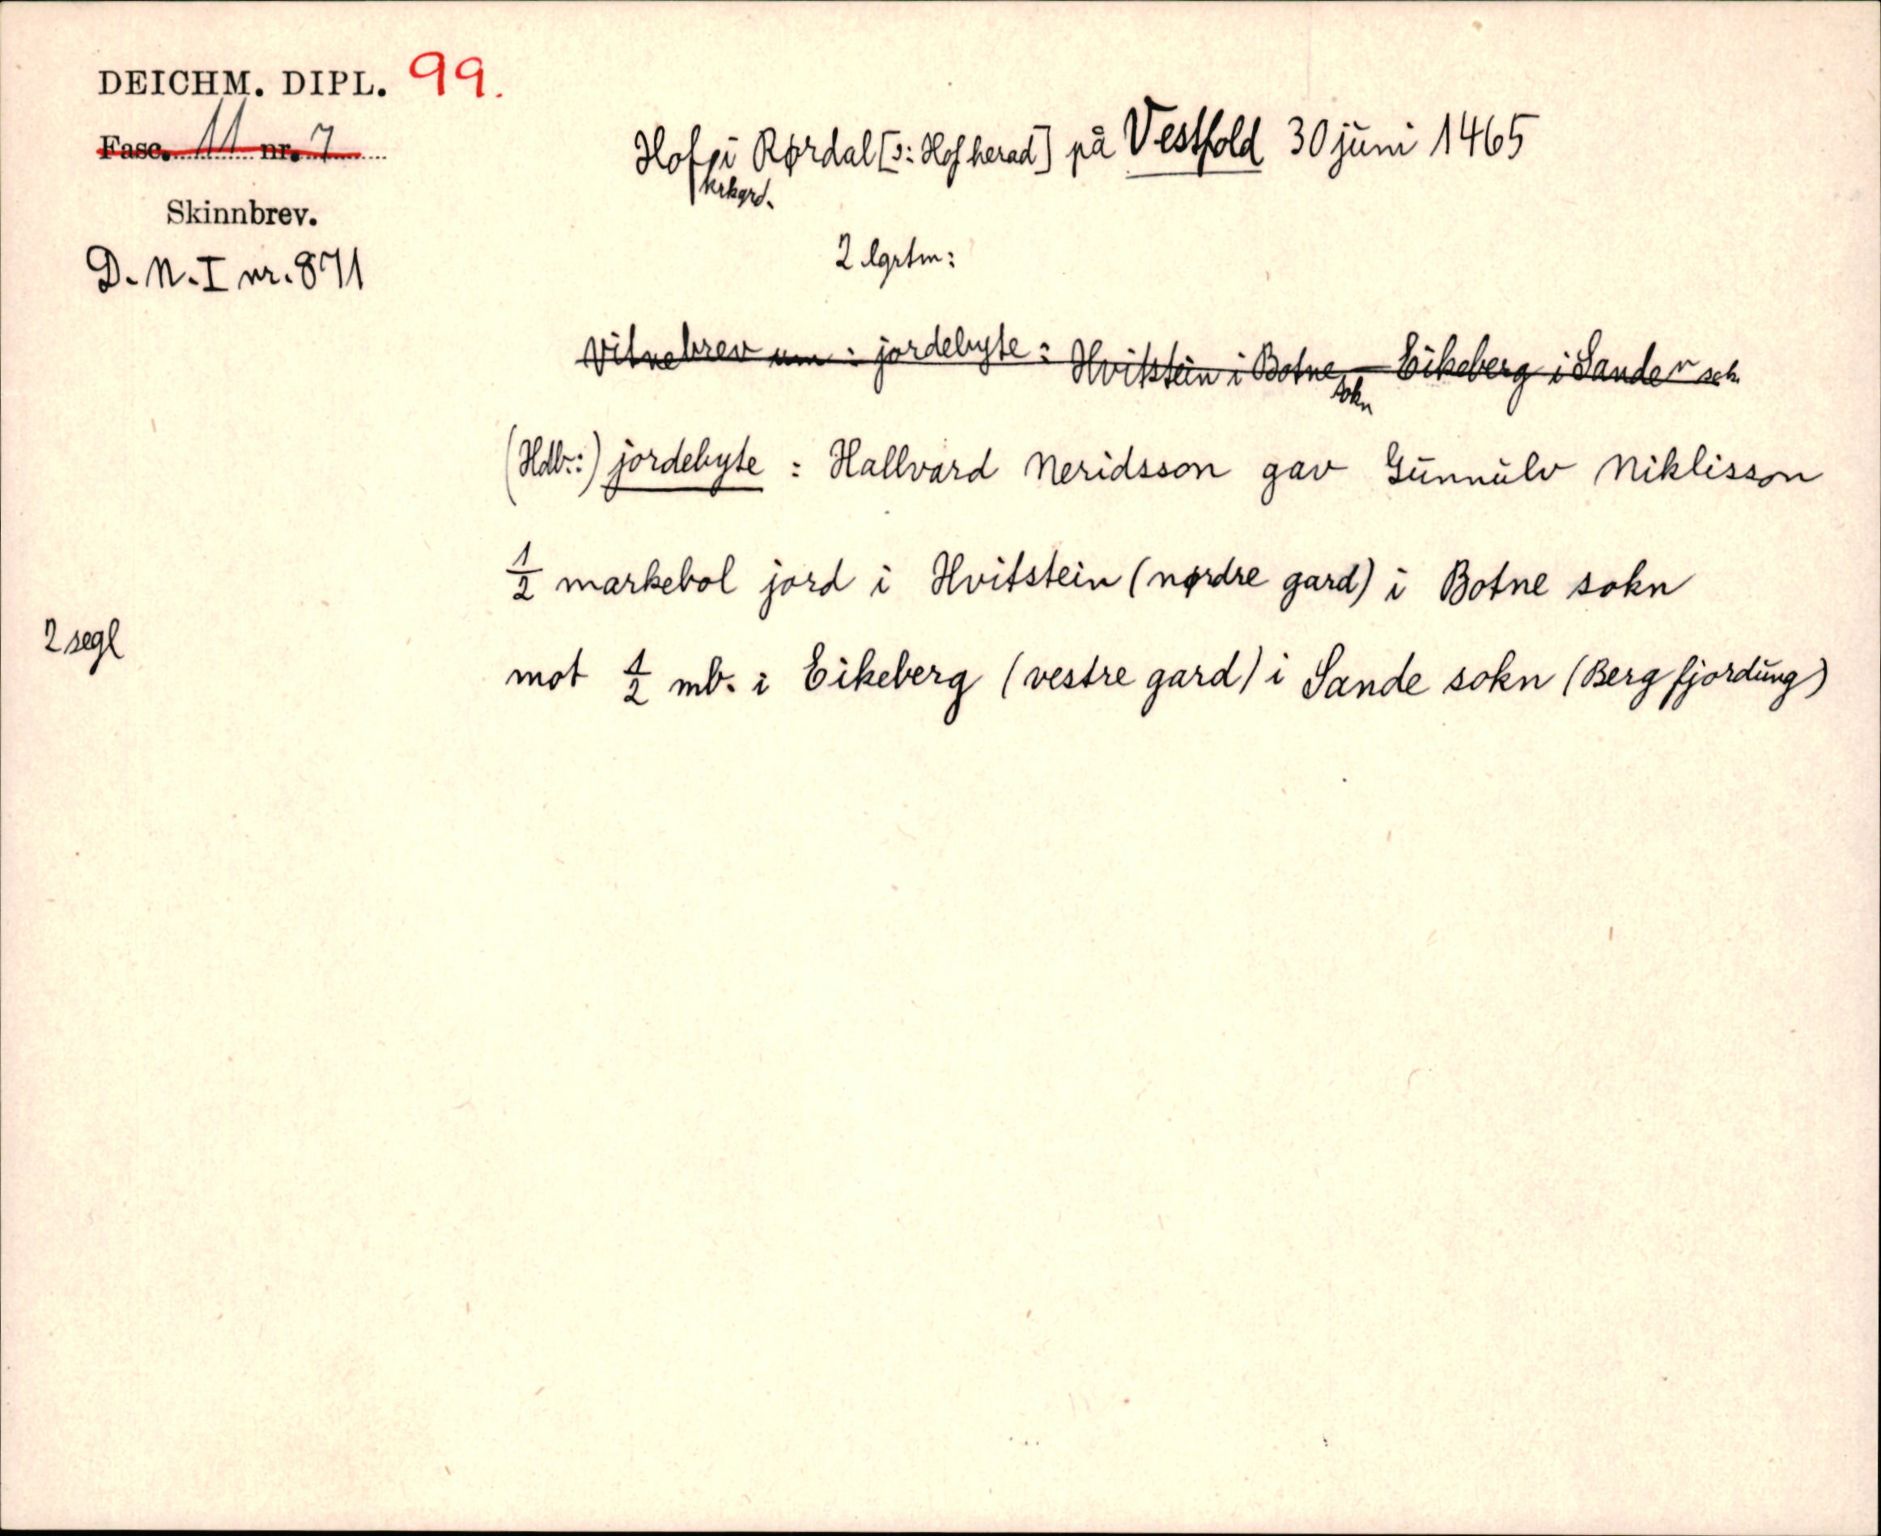 DEICHM. DIPL. 99.
Fasc. 11 nr. 7
Skinnbrev.
D. N. I nr. 871
Hof krkgrd. i Rørdal [ɔ: Hof herad] på Vestfold 30 juni 1465
2 lgrtm:
Vitnebrev um : jordebyte : Hvitstein i Botne sokn – Eikeberg i Sande sok.
(Hdb::) jordebyte : Hallvard Neridsson gav Gunnulv Niklisson
1/2 markebol jord i Hvitstein (nørdre gard) i Botne sokn
2 segl
mot 1/2 mb. i Eikeberg (vestre gard) i Sande sokn (Berg fjordung)